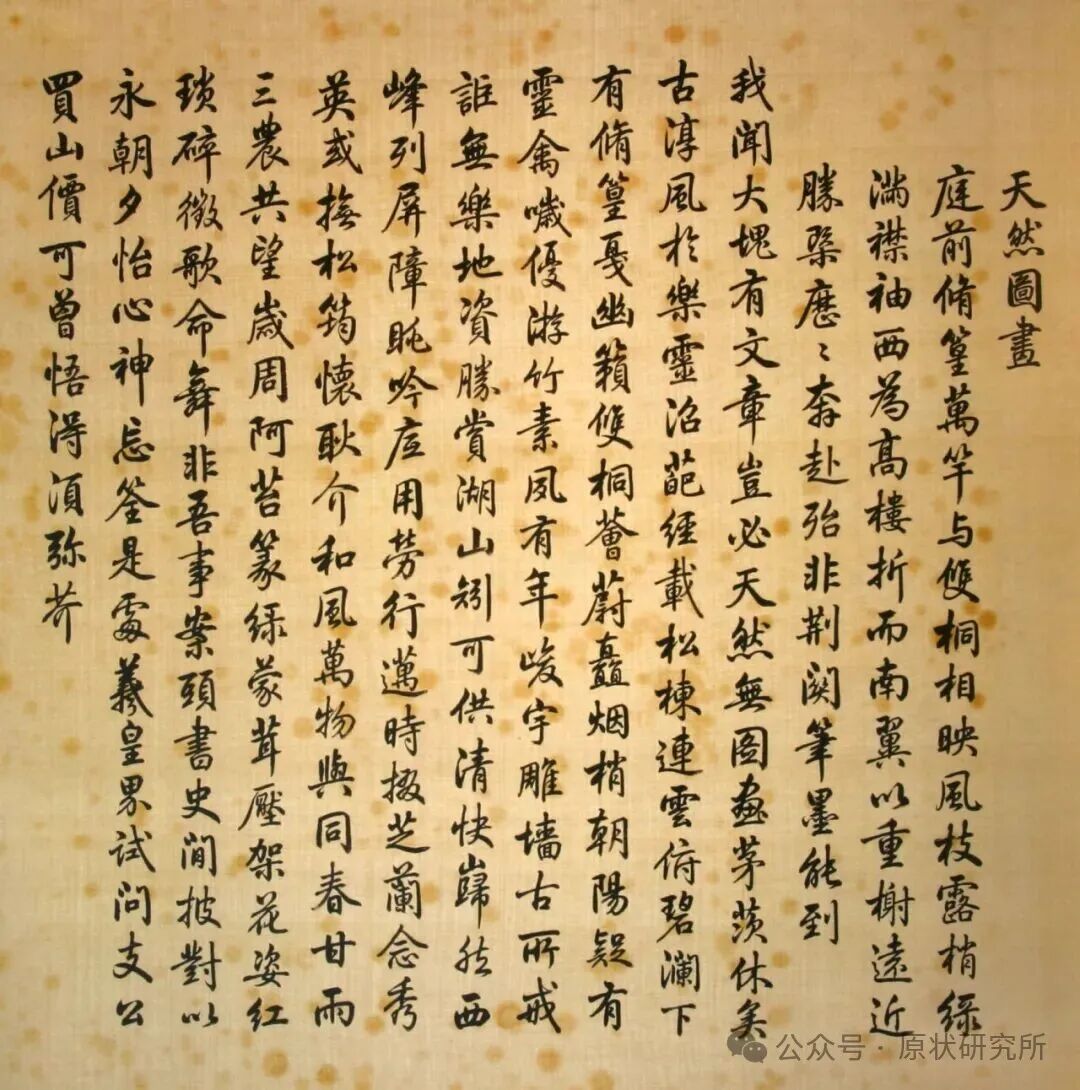 天然圖畫
庭前脩篁萬竿与雙桐相映風枝露梢綠
滿襟袖西為高樓折而南翼以重榭遠近
勝槩歷〻奔赴殆非荆関筆墨能到
我聞大塊有文章豈必天然無圖畫茅茨休矣
古淳風於樂靈沼葩經載松棟連雲俯碧瀾下
有脩篁戛幽籟雙桐薈蔚矗烟梢朝陽疑有
靈禽噦優游竹素夙有年峻宇雕墻古所戒
詎無樂地資勝賞湖山矧可供清快巋然西
峰列屏障眺吟底用勞行邁時掇芝蘭念秀
英或撫松筠懷耿介和風萬物與同春甘雨
三農共望歲周阿苔篆綠蒙茸壓架花姿紅
瑣碎徵歌命舞非吾事案頭書史閒披對以
永朝夕怡心神忘筌是處羲皇界試問支公
買山價可曾悟得須弥芥
公众号 · 原状研究所